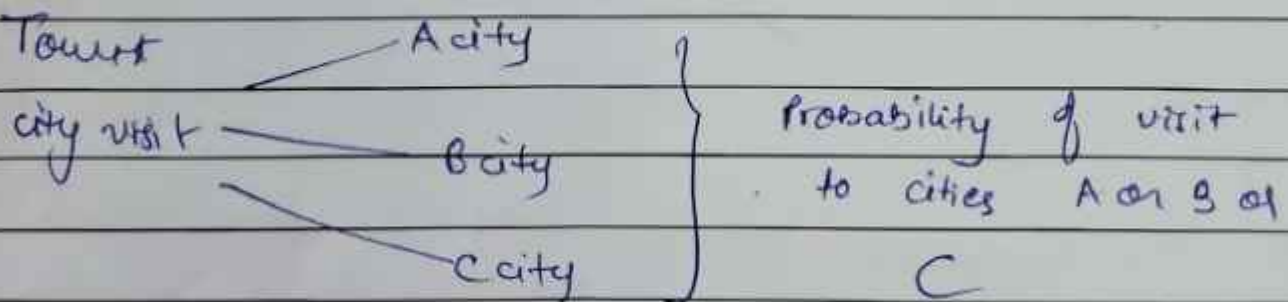 Tourist
A city
city visit
B city
C city
Probability of visit
to cities A or B or
C